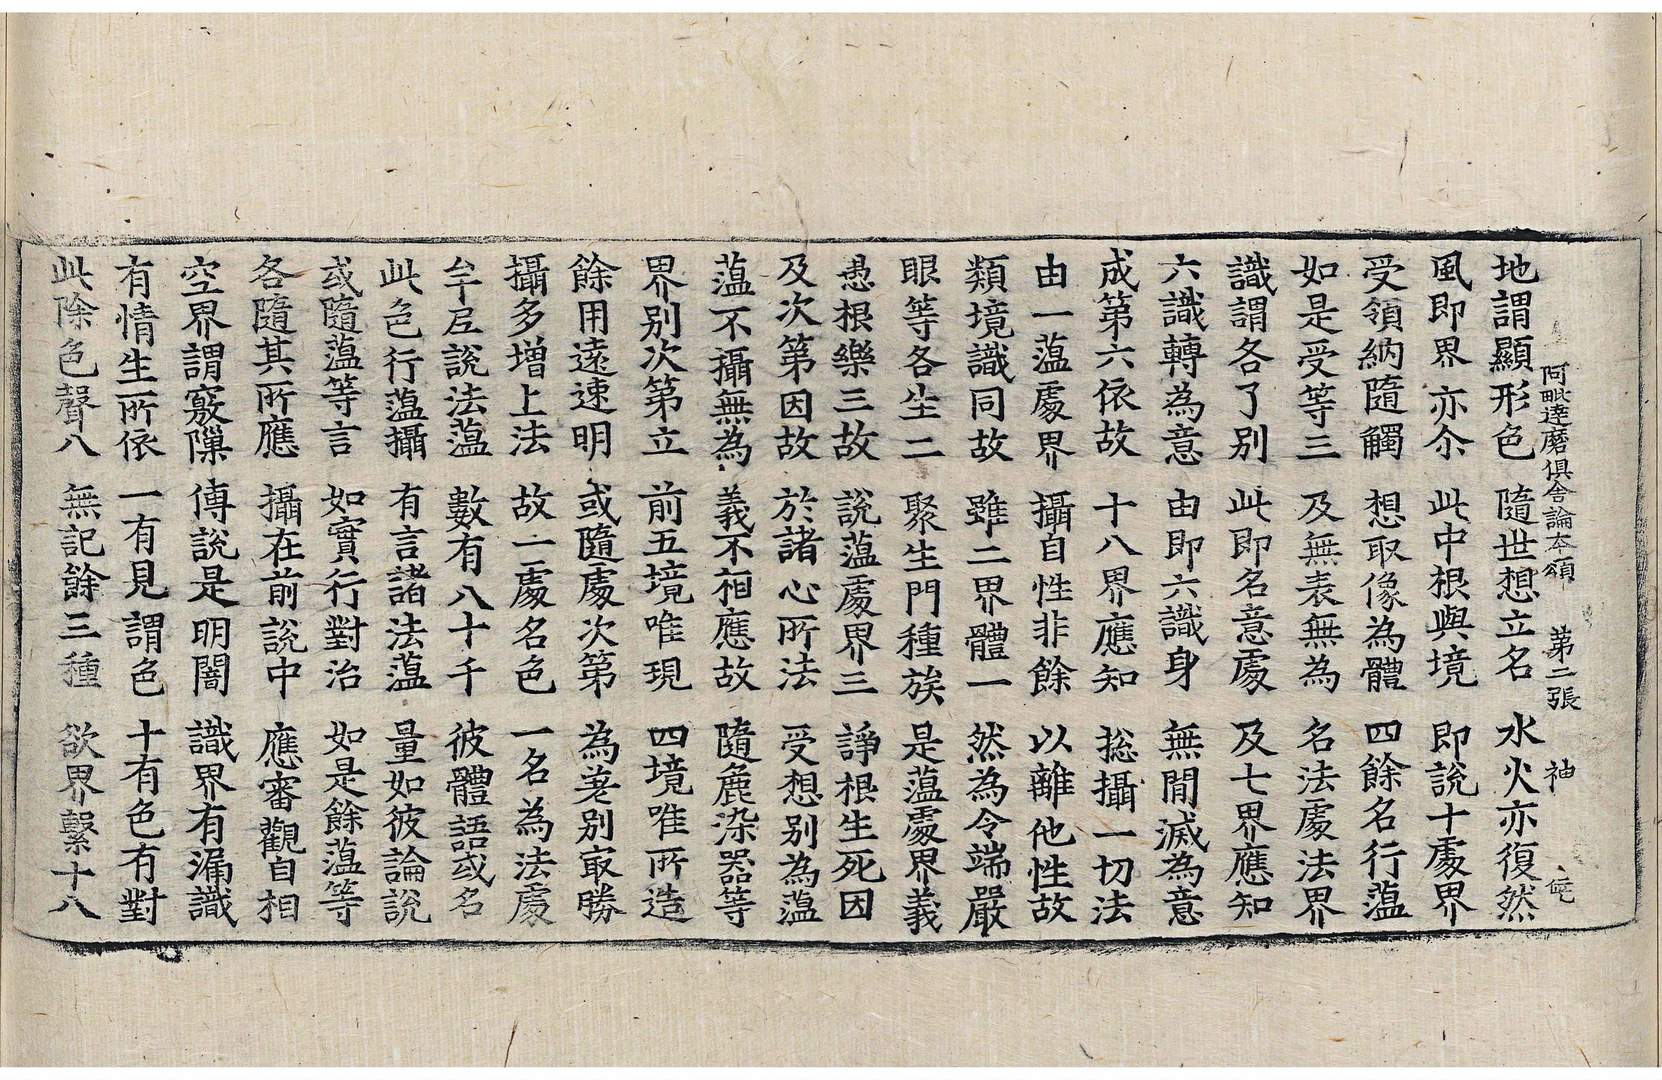 阿毗達磨俱舍論本頌 第二張 神
地謂顯形色 隨世想立名 水火亦復然
風即界亦尒 此中根與境 即說十處界
受領納隨觸 想取像為體 四餘名行蘊
如是受等三 及無表無為 名法處法界
識謂各了別 此即名意處 及七界應知
六識轉為意 由即六識身 無間滅為意
成第六依故 十八界應知 揔攝一切法
由一蘊處界 攝自性非餘 以離他性故
類境識同故 雖二界體一 然為令端嚴
眼等各生二 聚生門種族 是蘊處界義
愚根樂三故 說蘊處界三 諍根生死因
及次第因故 於諸心所法 受想別為蘊
蘊不攝無為 義不相應故 隨麁染器等
界別次第立 前五境唯現 四境唯所造
餘用遠速明 或隨處次第 為差別冣勝
攝多增上法 故一處名色 一名為法處
牟尼說法蘊 數有八十千 彼體語或名
此色行蘊攝 有言諸法蘊 量如彼論說
或隨蘊等言 如實行對治 如是餘蘊等
各隨其所應 攝在前說中 應審觀自相
空界謂竅隟 傳說是明闇 識界有漏識
有情生所依 一有見謂色 十有色有對
此除色聲八 無記餘三種 欲界繫十八